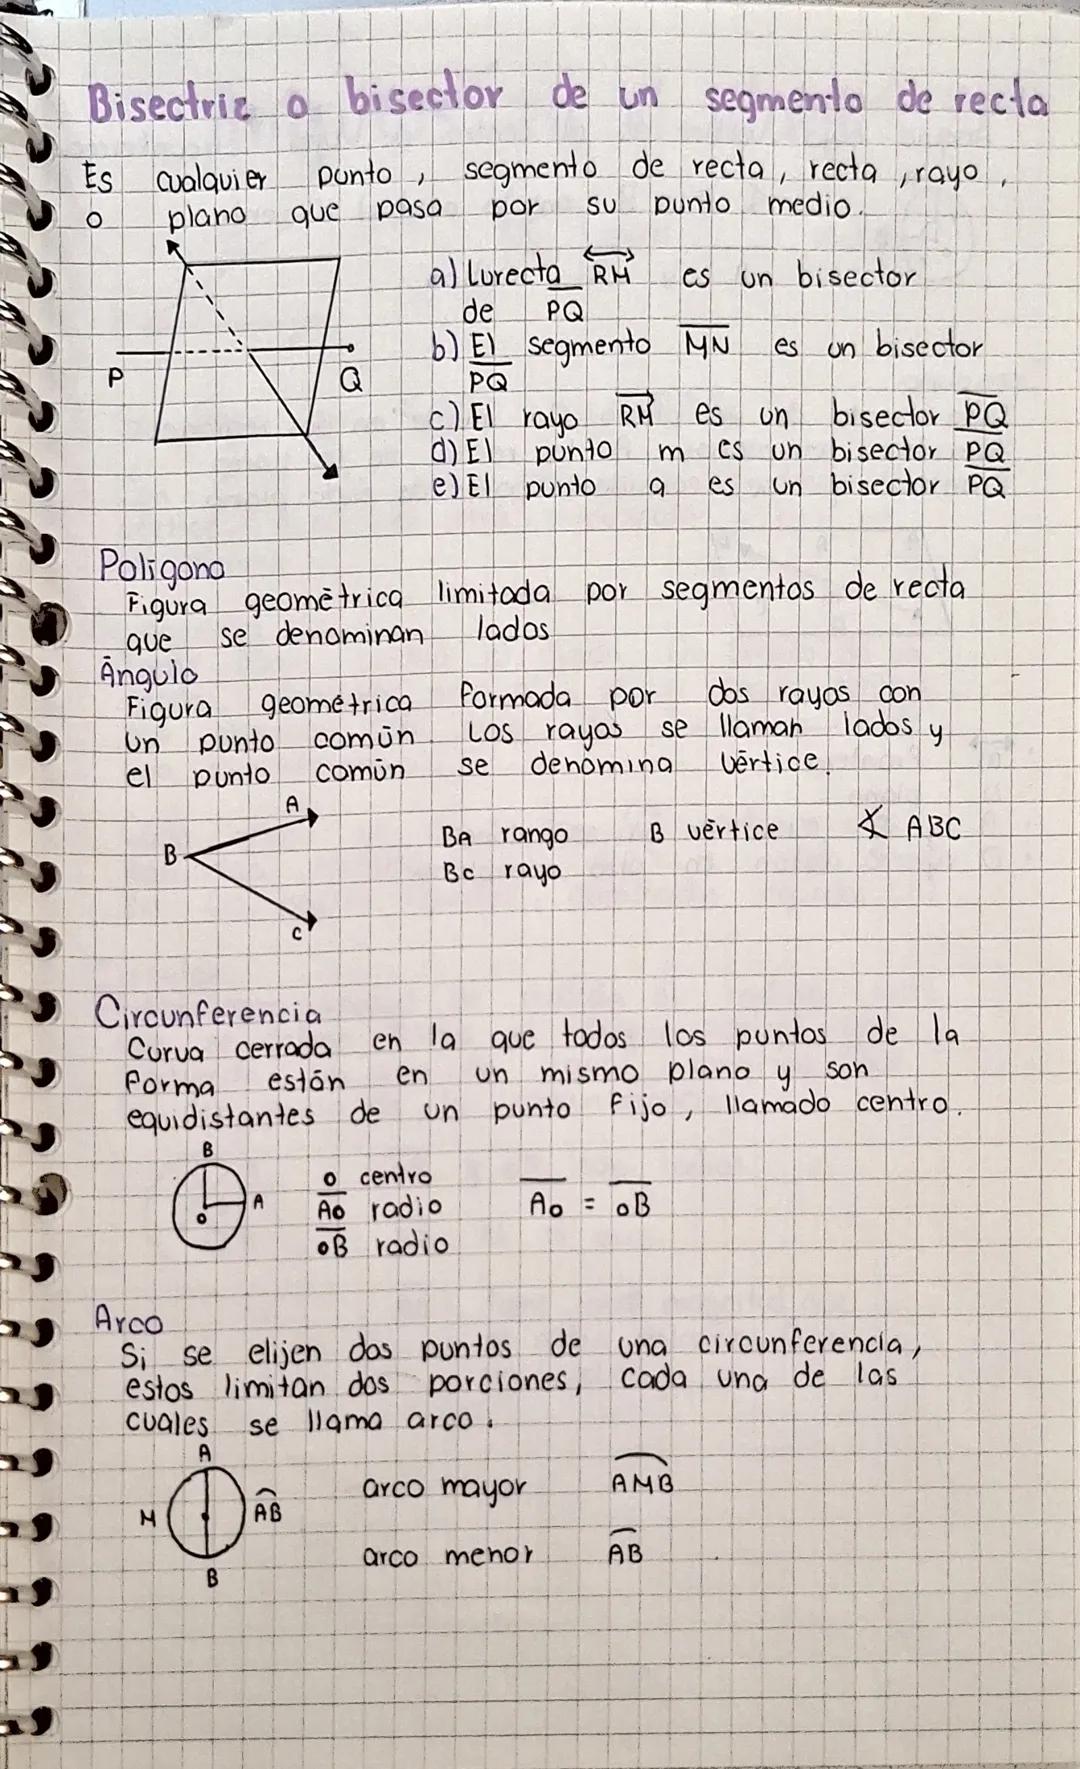 Bisectriz o bisector de un segmento de recta
Es cualquier punto, segmento de recta, recta, rayo,
o plano que pasa por su punto medio.
P
Q
a) Lurecta RM es un bisector
de PQ
b) El segmento MN es un bisector
PQ
c) El rayo RM es un bisector PQ
d) El punto m es un bisector PQ
e) El punto a es un bisector PQ
Poligono
Figura geométrica limitada por segmentos de recta
que se denominan lados
Ángulo
Figura geométrica formada por dos rayos con
un punto común. Los rayos se llaman lados y
el punto común se denomina vértice.
A
B
C
BA rango B vértice ∡ ABC
BC rayo
Circunferencia
Curva cerrada en la que todos los puntos de la
forma están en un mismo plano y son
equidistantes de un punto fijo, llamado centro.
B
A
o
o centro
Ao radio Ao = oB
oB radio
Arco
Si se elijen dos puntos de una circunferencia,
estos limitan dos porciones, cada una de las
cuales se llama arco.
A
M
AB
B
arco mayor AMB
arco menor AB